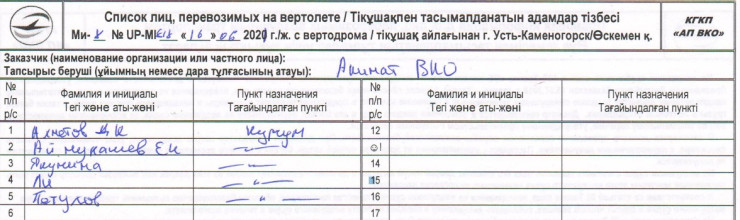 Список лиц, перевозимых на вертолете / Тікұшақпен тасымалданатын адамдар тізбесі
КГКП
«АП ВКО»
Ми-8 № UP-MI « 16 » 06 2021 г./ж. с вертодрома / тікұшақ айлағынан г. Усть-Каменогорск/Өскемен қ.
Заказчик (наименование организации или частного лица):
Тапсырыс беруші (ұйымның немесе дара тұлғасының атауы): Акимат ВКО
№ п/п р/с
Фамилия и инициалы
Тегі және аты-жөні
Пункт назначения
Тағайындалған пункті
№ п/п р/с
Фамилия и инициалы
Тегі және аты-жөні
Пункт назначения
Тағайындалған пункті
1 Ахметов 12
2 Ай мукашев Е К — " —
3 Якунина — " — 14
4 Ли — " — 15
5 — " — 16
6 17